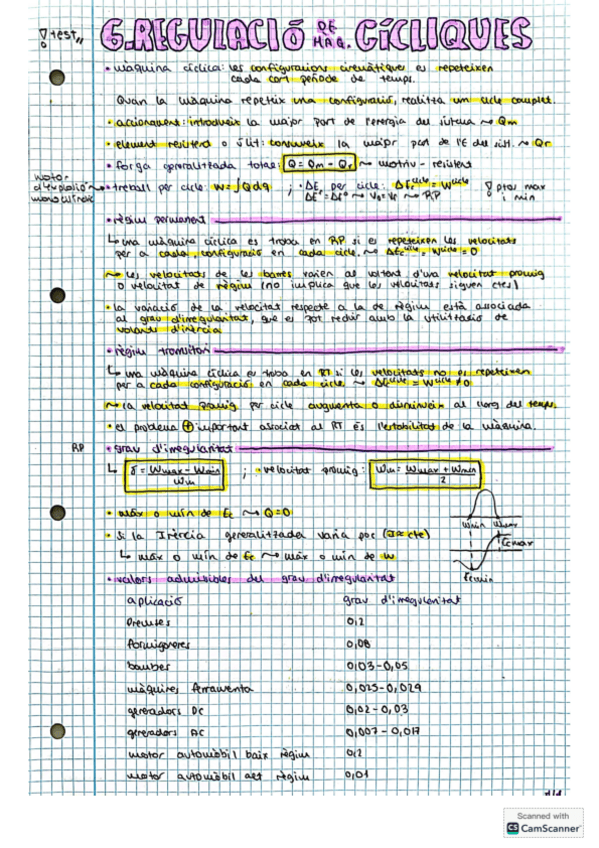 ! test,,
6. REGULACIÓ DE MÀQ. CÍCLIQUES
• màquina cíclica: les configuracions cinemàtiques es repeteixen
cada cert període de temps.
Quan la màquina repeteix una configuració, realitza un cicle complet.
• accionament: introdueix la major part de l'energia del sistema ~ Qm
• element resistent o útil: consumeix la major part de l'E del sist. ~ Qr
• força generalitzada total: Q = Qm - Qr ~ motriu - resistent
motor d'explosió monocilíndric
• treball per cicle: W = ∫Q dq ; • ΔEc per cicle: ΔEc^cicle = W^cicle
! pros max i min
~ V0 = Vf ~ RP
• règim permanent
↳ una màquina cíclica es troba en RP si es repeteixen les velocitats
per a cada configuració en cada cicle. ~ ΔEc^cicle = W^cicle = 0
~ les velocitats de les barres varien al voltant d'una velocitat promig
o velocitat de règim (no implica que les velocitats siguen ctes)
• la variació de la velocitat respecte a la de règim està associada
al grau d'irregularitat, que es pot reduir amb la utilització de
volants d'inèrcia
• règim transitori
↳ una màquina cíclica es troba en RT si les velocitats no es repeteixen
per a cada configuració en cada cicle. ~ ΔEc^cicle = W^cicle ≠ 0
~ la velocitat promig per cicle augmenta o disminueix al llarg del temps.
• el problema ⊕ important associat al RT és l'estabilitat de la màquina.
RP
• grau d'irregularitat
↳ δ = (Wmax - Wmin) / Wm ; • velocitat promig: Wm = (Wmax + Wmin) / 2
• màx o mín de Ec ~ Q = 0
• si la Inèrcia generalitzada varia poc (I ≈ cte)
↳ màx o mín de Ec ~ màx o mín de w
Wmin Wmax
Ecmax
Ecmin
• valors admisibles del grau d'irregularitat
aplicació grau d'irregularitat
Premses 0,2
formigoneres 0,08
bombes 0,03 - 0,05
màquines ferramenta 0,025 - 0,029
generadors DC 0,02 - 0,03
generadors AC 0,007 - 0,017
motor automòbil baix règim 0,2
motor automòbil alt règim 0,01
Scanned with
CS CamScanner